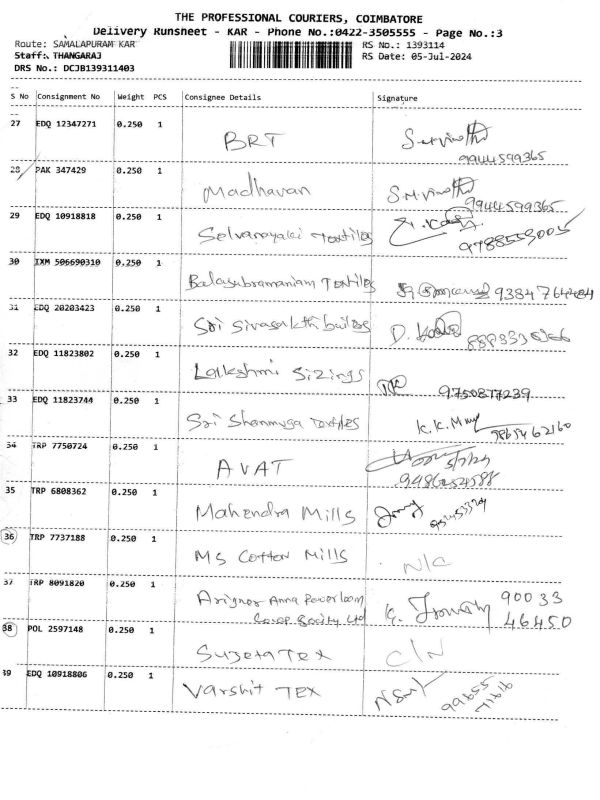 THE PROFESSIONAL COURIERS, COIMBATORE
Delivery Runsheet - KAR - Phone No.:0422-3505555 - Page No.:3
Route: SAMALAPURAM KAR RS No.: 1393114
Staff: THANGARAJ RS Date: 05-Jul-2024
DRS No.: DCJB139311403
S No Consignment No Weight PCS Consignee Details Signature
27 EDQ 12347271 0.250 1 BRT
9944599365
28 PAK 347429 0.250 1 Madhavan
9944599365
29 EDQ 10918818 0.250 1 Selvanayaki Textiles
9788559005
30 IXM 506690310 0.250 1 Balasubramaniam Textiles 9384764484
31 EDQ 20203423 0.250 1 Sri Sivasakthi D.
32 EDQ 11823802 0.250 1 Lakshmi Sizings 9750877239
33 EDQ 11823744 0.250 1 Sri Shanmuga Textiles K.K.
9865462160
34 TRP 7750724 0.250 1 AVAT 5/7/24
35 TRP 6808362 0.250 1 Mahendra Mills
36 TRP 7737188 0.250 1 MS Cotton Mills N/C
37 TRP 8091820 0.250 1 Arignar Anna Powerloom 90033
Co-op Society Ltd 46450
38 POL 2597148 0.250 1 Sujeta Tex C/N
39 EDQ 10918806 0.250 1 Varshit TEX
99655